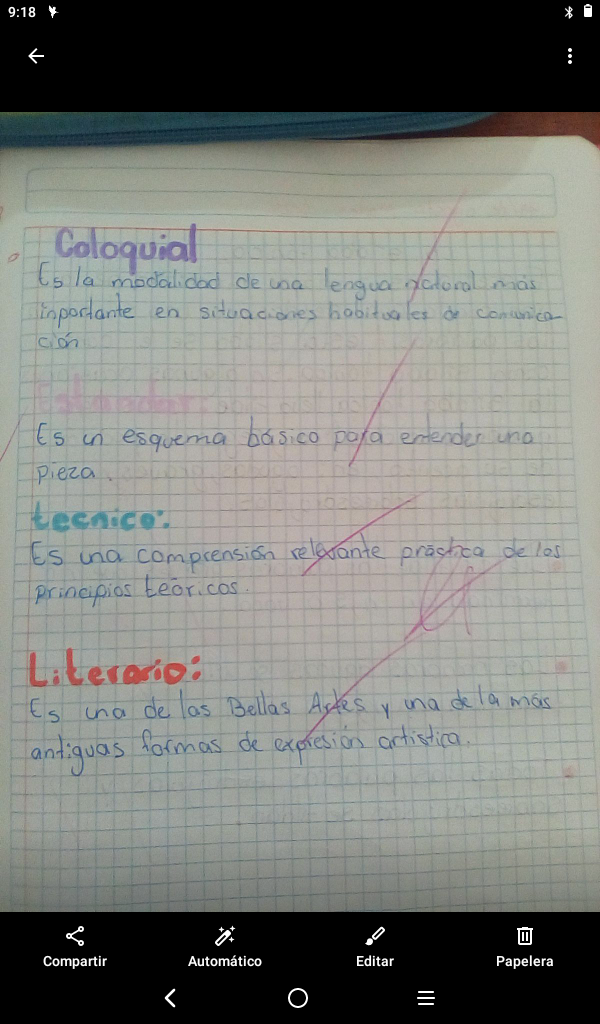 9:18
Coloquial
Es la modalidad de una lengua natural más
inportante en situaciones habituales de comunica
ción
Estandar:
Es un esquema básico para entender una
pieza.
tecnico:
Es una comprensión relevante práctica de los
principios teóricos.
Literario:
Es una de las Bellas Artes y una de la más
antiguas formas de expresión artistica.
Compartir
Automático
Editar
Papelera